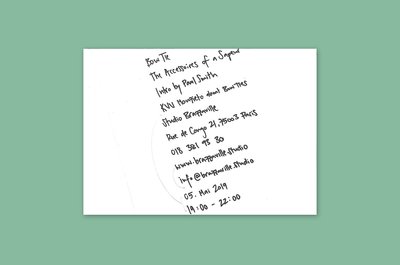 Bow Tie
The Accessoires of a Sapeur
Intro by Paul Smith
KVV Mouzieto dout Bow Ties
Studio Brazzaville
Rue de Congo 21, 75003 Paris
018 381 93 80
www.brazzaville.studio
info@brazzaville.studio
05. Mai 2019
19:00 - 22:00